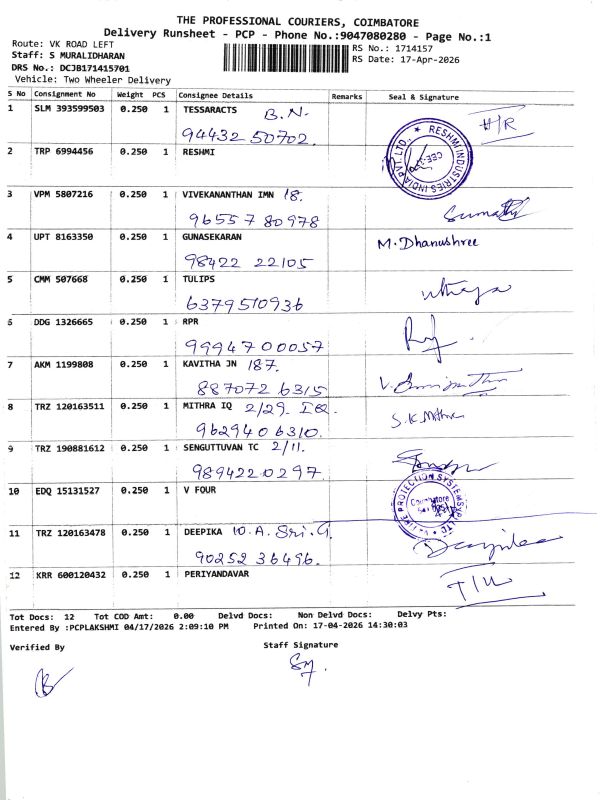 THE PROFESSIONAL COURIERS, COIMBATORE
Delivery Runsheet - PCP - Phone No.:9047080280 - Page No.:1
Route: VK ROAD LEFT
Staff: S MURALIDHARAN
DRS No.: DCJB171415701
Vehicle: Two Wheeler Delivery
RS No.: 1714157
RS Date: 17-Apr-2026
S No Consignment No Weight PCS Consignee Details Remarks Seal & Signature
1 SLM 393599503 0.250 1 TESSARACTS B.N. H/R
94432 50702.
2 TRP 6994456 0.250 1 RESHMI
RESHMI INDUSTRIES INDIA PVT. LTD.,
3 VPM 5807216 0.250 1 VIVEKANANTHAN IMN 18.
96557 80978
4 UPT 8163350 0.250 1 GUNASEKARAN M. Dhanushree
98422 22105
5 CMM 507668 0.250 1 TULIPS
6379510936
6 DDG 1326665 0.250 1 RPR
9994700057
7 AKM 1199808 0.250 1 KAVITHA JN 187.
887072 6315
8 TRZ 120163511 0.250 1 MITHRA IQ 2/29. IQ. S.K. Mithra
9629406310.
9 TRZ 190881612 0.250 1 SENGUTTUVAN TC 2/11.
9894220297.
10 EDQ 15131527 0.250 1 V FOUR
PROTECTION SYSTEMS PVT LTD
Coimbatore
11 TRZ 120163478 0.250 1 DEEPIKA 10.A. Sri.G.
90252 36496.
12 KRR 600120432 0.250 1 PERIYANDAVAR
Tot Docs: 12 Tot COD Amt: 0.00 Delvd Docs: Non Delvd Docs: Delvy Pts:
Entered By :PCPLAKSHMI 04/17/2026 2:09:10 PM Printed On: 17-04-2026 14:30:03
Verified By Staff Signature